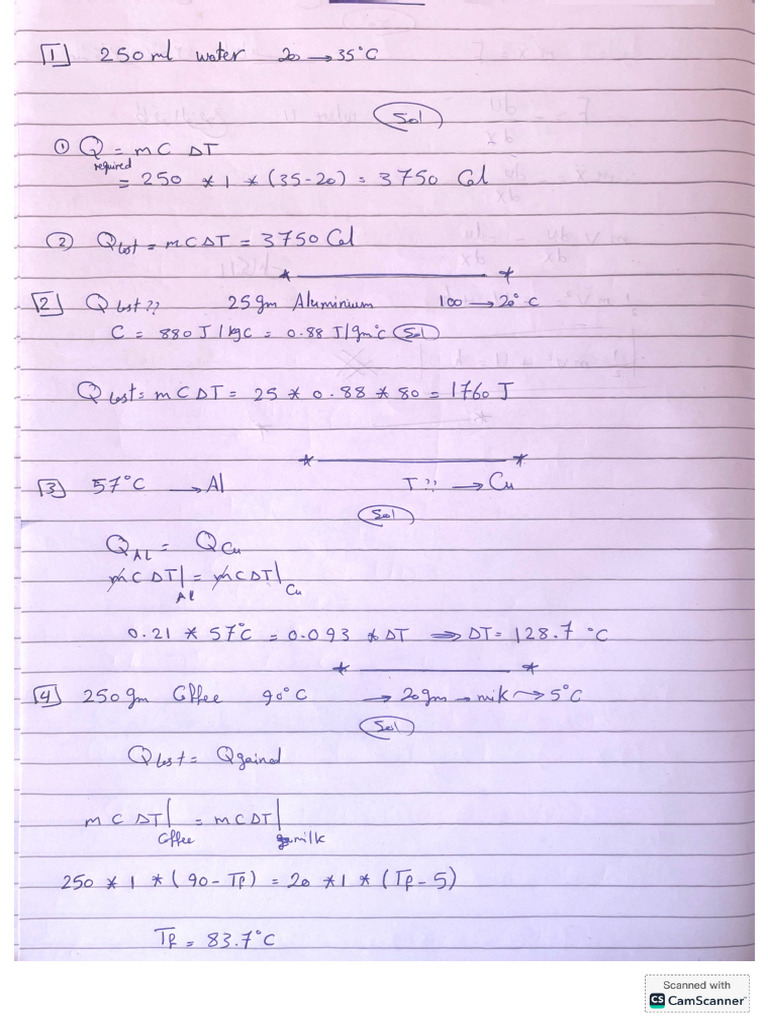 1 250ml water 20 → 35°C
Sol
① Q required = mC ΔT
= 250 * 1 * (35-20) = 3750 Cal
② Q lost = mCΔT = 3750 Cal
2 Q lost ?? 25gm Aluminium 100 → 20°C
C = 880 J/kgC = 0.88 J/gm°C Sol
Q lost = mCΔT = 25 * 0.88 * 80 = 1760 J
3 57°C → Al T?? → Cu
Sol
Q Al = Q Cu
mCΔT| Al = mCΔT| Cu
0.21 * 57°C = 0.093 * ΔT ⇒ ΔT = 128.7 °C
4 250gm Coffee 90°C → 20gm → mik → 5°C
Sol
Q lost = Q gained
mCΔT| Coffee = mCΔT| milk
250 * 1 * (90 - Tf) = 20 * 1 * (Tf - 5)
Tf = 83.7°C
Scanned with
CS CamScanner